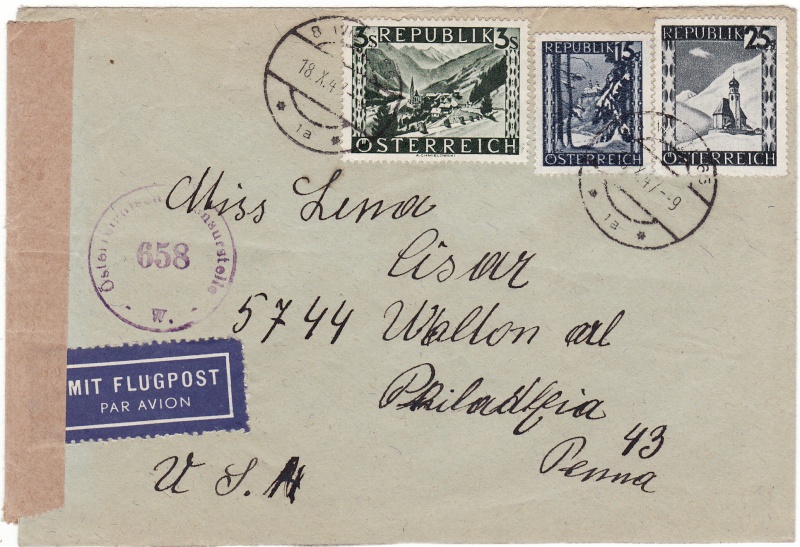 3s REPUBLIK 3s
ÖSTERREICH
A. CHMIELOWSKI
REPUBLIK 15
ÖSTERREICH
REPUBLIK 25
ÖSTERREICH
18.X.47
1a
X.47--9
1a
Miss Lena
Cisar
5744 Walton
Philadlfia
43
Penna
U S. A
658
W.
MIT FLUGPOST
PAR AVION